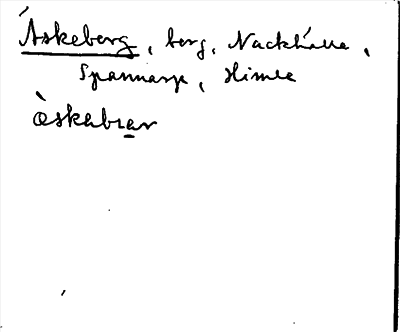 Áskeberg, berg, Nackhälle,
Spannarp, Himle
òskabrar